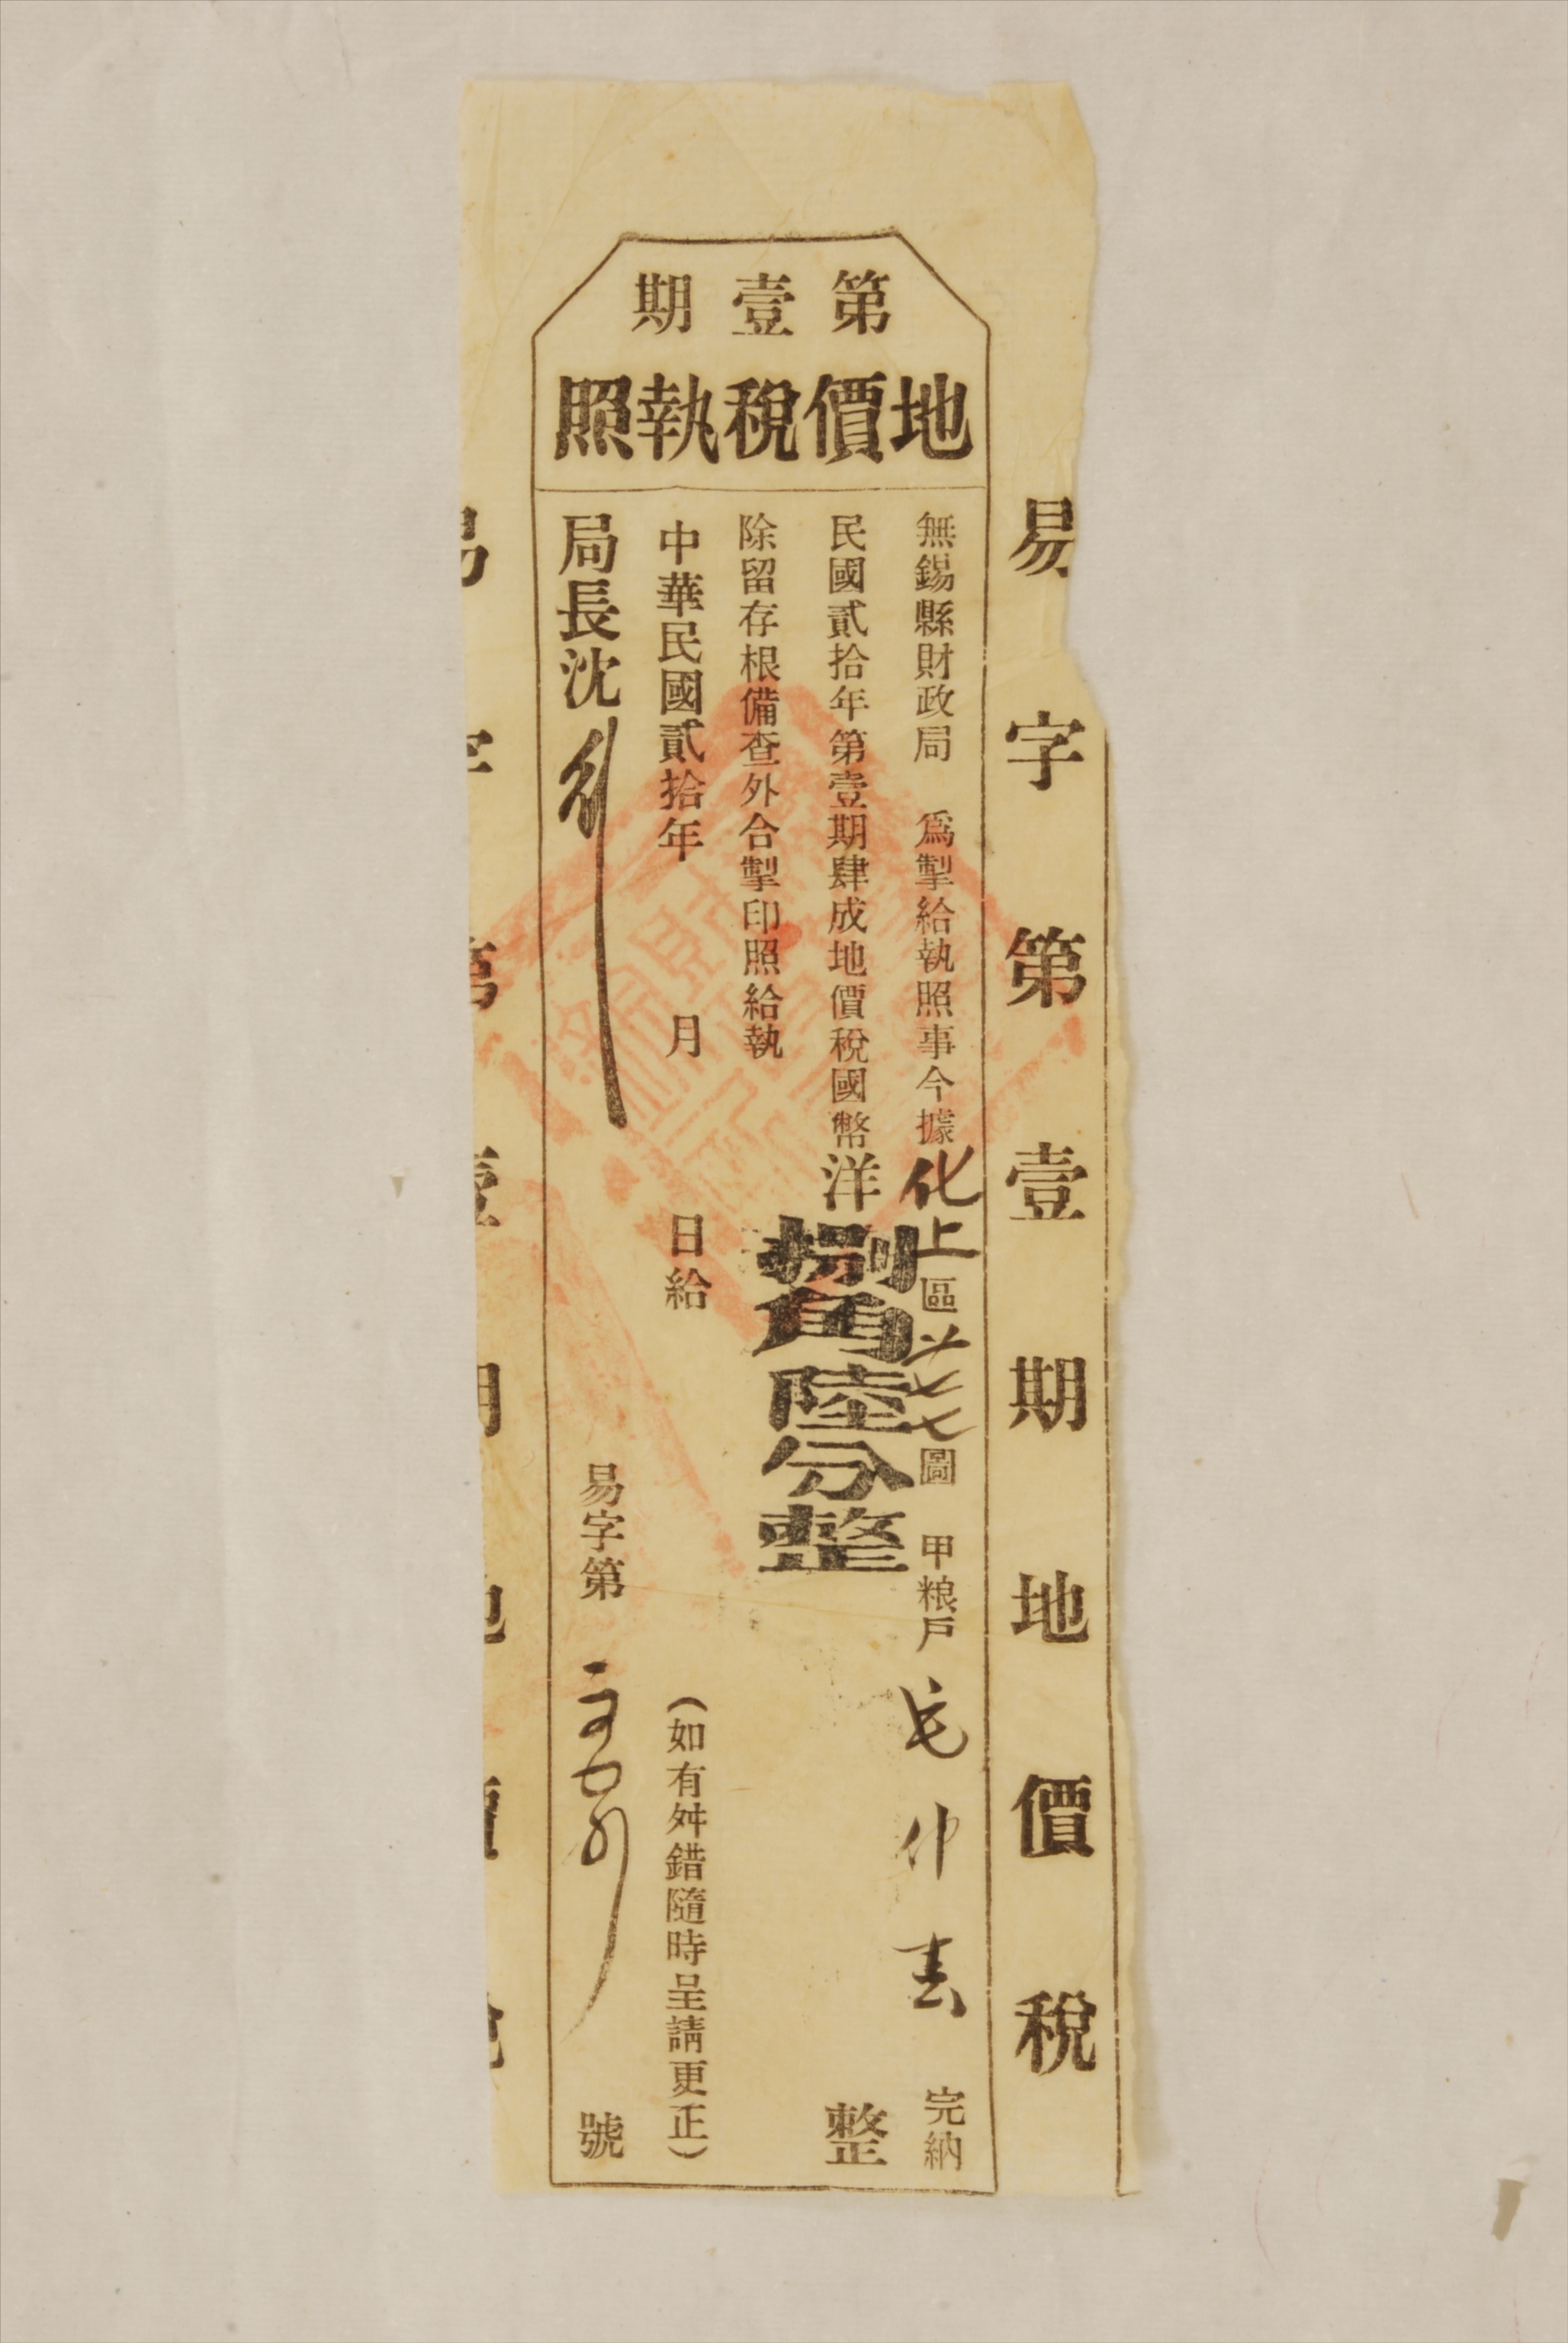 易字第壹期地價稅
第壹期
地價稅執照
無錫縣財政局 爲掣給執照事今據化上區 圖 甲粮戶毛仲 完納
民國貳拾年第壹期肆成地價稅國幣洋捌角陸分整 整
除留存根備查外合掣印照給執
中華民國貳拾年 月 日給 (如有舛錯隨時呈請更正)
局長沈 易字第 號